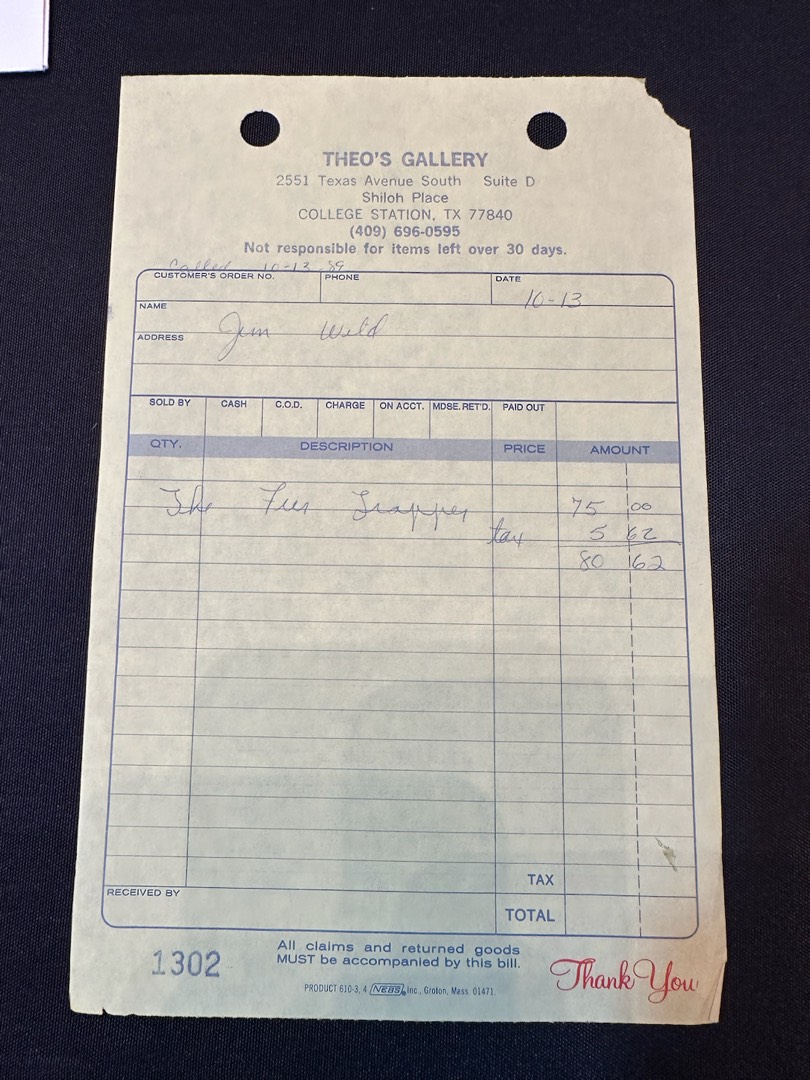 THEO'S GALLERY
2551 Texas Avenue South Suite D
Shiloh Place
COLLEGE STATION, TX 77840
(409) 696-0595
Not responsible for items left over 30 days.
Called 10-13-89
CUSTOMER'S ORDER NO. PHONE DATE
10-13
NAME
Jim Wild
ADDRESS
SOLD BY CASH C.O.D. CHARGE ON ACCT. MDSE. RET'D. PAID OUT
QTY. DESCRIPTION PRICE AMOUNT
The Fur Trapper 75 00
tax 5 62
80 62
TAX
RECEIVED BY
TOTAL
1302
All claims and returned goods
MUST be accompanied by this bill.
Thank You
PRODUCT 610-3, 4 NEBS, Inc., Groton, Mass. 01471.